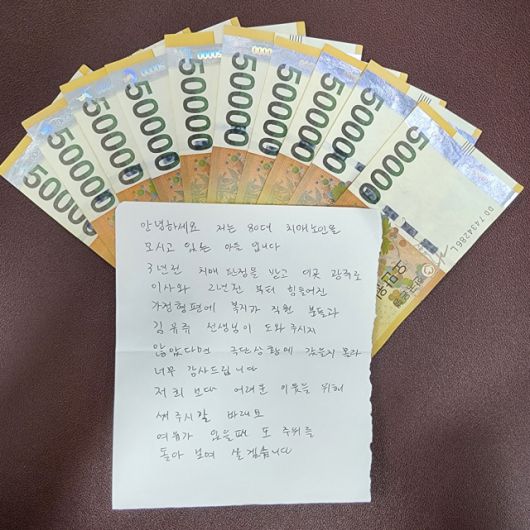 50000
50000
50000
50000
50000
50000
50000
50000
50000
50000
안녕하세요 저는 80대 치매노인을
모시고 있는 아들 입니다
3년전 치매 판정을 받고 이곳 광적로
이사와 2년전 부터 힘들어진
가정형편에 복지과 직원 분들과
김유쥬 선생님이 도와 주시지
않았다면 극단상황에 갔을지 몰라
너무 감사드립니다
저희 보다 어려운 이웃을 위해
써주시길 바래요
여유가 있을때 또 주위를
돌아 보며 살겠습니다